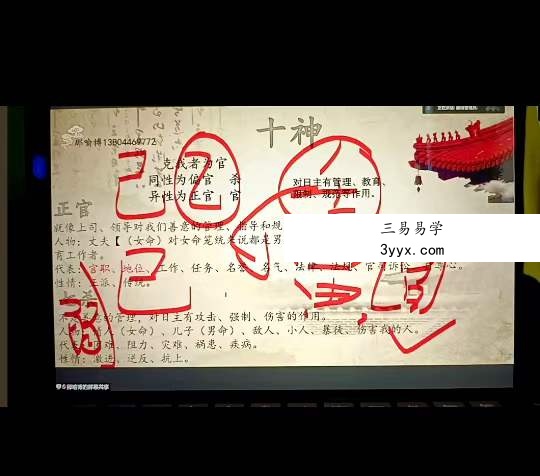 十神
郎哈博13804469772
克我者为官
同性为偏官 杀
异性为正官 官
对日主有管理、教育、
限制、规范等作用。
正官
就像上司、领导对我们善意的管理、指导和规
人物：丈夫【（女命）对女命笼统来说都是男
育工作者。
代表：官职、地位、工作、任务、名誉、名气、法律、法规、官司诉讼
性情：正派、传统。
三易易学
3yyx.com
管理，对日主有攻击、强制、伤害的作用。
人（女命）、儿子（男命）、敌人、小人、暴徒、伤害我的人。
困难、阻力、灾难、祸患、疾病。
性情：激进、逆反、抗上。
郎哈博的屏幕共享